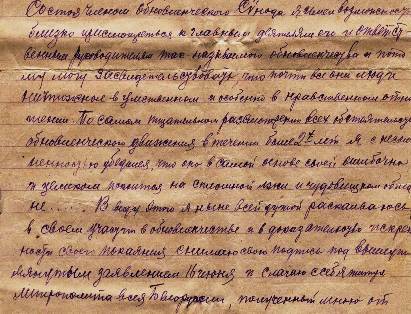 Состоя членом обновленческого Синода я имел возможность
близко присмотреться к главным деятелям его и ответст
венным руководителям так называемого обновленчества и пото
му могу засвидетельствовать что почти все они люди
ничтожные в умственном и особенно в нравственном отно
шении. По самом тщательном рассмотрении всех обстоятельств
обновленческого движения в течении более 2х лет я с несом
ненностью убедился, что оно в самой основе своей ошибочно
и целиком покоится на сплошной лжи и чудовищном обма
не..... В виду этого я ныне всей душой раскаиваюсь
в своем участии в обновленчестве и в доказательство искрен
ности своего покаяния снимаю свою подпись под вышеупо
мянутым заявлением 16 июня и слагаю с себя титул
митрополита всея Белоруссии, полученный мною от